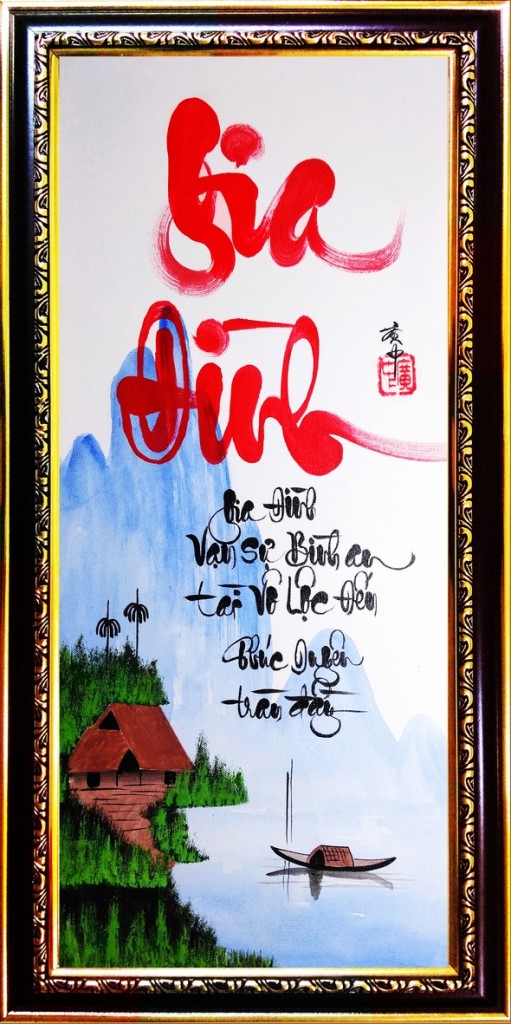 Gia
Đình
黄中
Gia Đình
Vạn Sự Bình an
tài Vô Lộc Đến
Phúc
tràn đầy